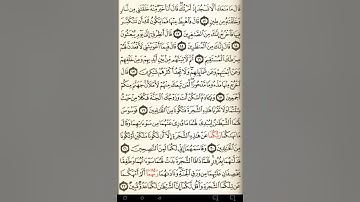 قَالَ مَا مَنَعَكَ أَلَّا تَسْجُدَ إِذْ أَمَرْتُكَ قَالَ أَنَا۠ خَيْرٌ مِّنْهُ خَلَقْتَنِى مِن نَّارٍ
وَخَلَقْتَهُۥ مِن طِينٍ ١٢ قَالَ فَٱهْبِطْ مِنْهَا فَمَا يَكُونُ لَكَ أَن تَتَكَبَّرَ
فِيهَا فَٱخْرُجْ إِنَّكَ مِنَ ٱلصَّـٰغِرِينَ ١٣ قَالَ أَنظِرْنِىٓ إِلَىٰ يَوْمِ يُبْعَثُونَ
١٤ قَالَ إِنَّكَ مِنَ ٱلْمُنظَرِينَ ١٥ قَالَ فَبِمَآ أَغْوَيْتَنِى لَأَقْعُدَنَّ لَهُمْ
صِرَٰطَكَ ٱلْمُسْتَقِيمَ ١٦ ثُمَّ لَـَٔاتِيَنَّهُم مِّنۢ بَيْنِ أَيْدِيهِمْ وَمِنْ خَلْفِهِمْ
وَعَنْ أَيْمَـٰنِهِمْ وَعَن شَمَآئِلِهِمْ وَلَا تَجِدُ أَكْثَرَهُمْ شَـٰكِرِينَ ١٧ قَالَ
ٱخْرُجْ مِنْهَا مَذْءُومًا مَّدْحُورًا لَّمَن تَبِعَكَ مِنْهُمْ لَأَمْلَأَنَّ جَهَنَّمَ مِنكُمْ
أَجْمَعِينَ ١٨ وَيَـٰٓـَٔادَمُ ٱسْكُنْ أَنتَ وَزَوْجُكَ ٱلْجَنَّةَ فَكُلَا مِنْ حَيْثُ
شِئْتُمَا وَلَا تَقْرَبَا هَـٰذِهِ ٱلشَّجَرَةَ فَتَكُونَا مِنَ ٱلظَّـٰلِمِينَ ١٩ فَوَسْوَسَ
لَهُمَا ٱلشَّيْطَـٰنُ لِيُبْدِىَ لَهُمَا مَا وُۥرِىَ عَنْهُمَا مِن سَوْءَٰتِهِمَا وَقَالَ
مَا نَهَىٰكُمَا رَبُّكُمَا عَنْ هَـٰذِهِ ٱلشَّجَرَةِ إِلَّآ أَن تَكُونَا مَلَكَيْنِ أَوْ تَكُونَا
مِنَ ٱلْخَـٰلِدِينَ ٢٠ وَقَاسَمَهُمَآ إِنِّى لَكُمَا لَمِنَ ٱلنَّـٰصِحِينَ ٢١
فَدَلَّىٰهُمَا بِغُرُورٍ فَلَمَّا ذَاقَا ٱلشَّجَرَةَ بَدَتْ لَهُمَا سَوْءَٰتُهُمَا وَطَفِقَا
يَخْصِفَانِ عَلَيْهِمَا مِن وَرَقِ ٱلْجَنَّةِ وَنَادَىٰهُمَا رَبُّهُمَآ أَلَمْ أَنْهَكُمَا
عَن تِلْكُمَا ٱلشَّجَرَةِ وَأَقُل لَّكُمَآ إِنَّ ٱلشَّيْطَـٰنَ لَكُمَا عَدُوٌّ مُّبِينٌ ٢٢